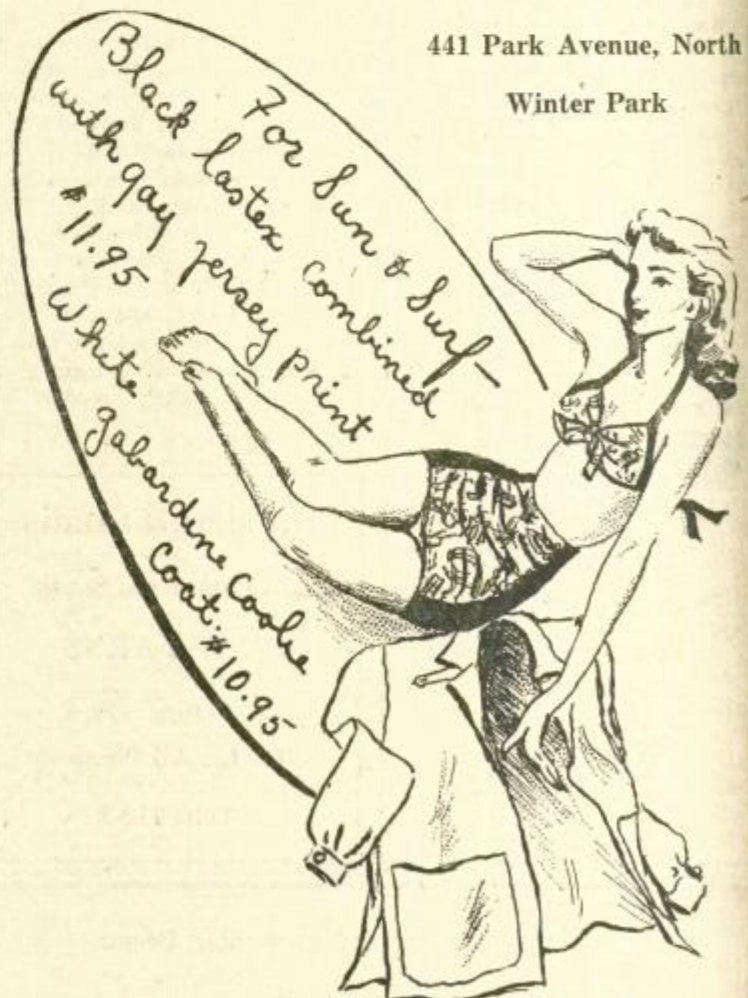 441 Park Avenue, North
Winter Park
For Sun & Surf—
Black lastex combined
with gay jersey print
$11.95
White gabardine Coolie
Coat. $10.95